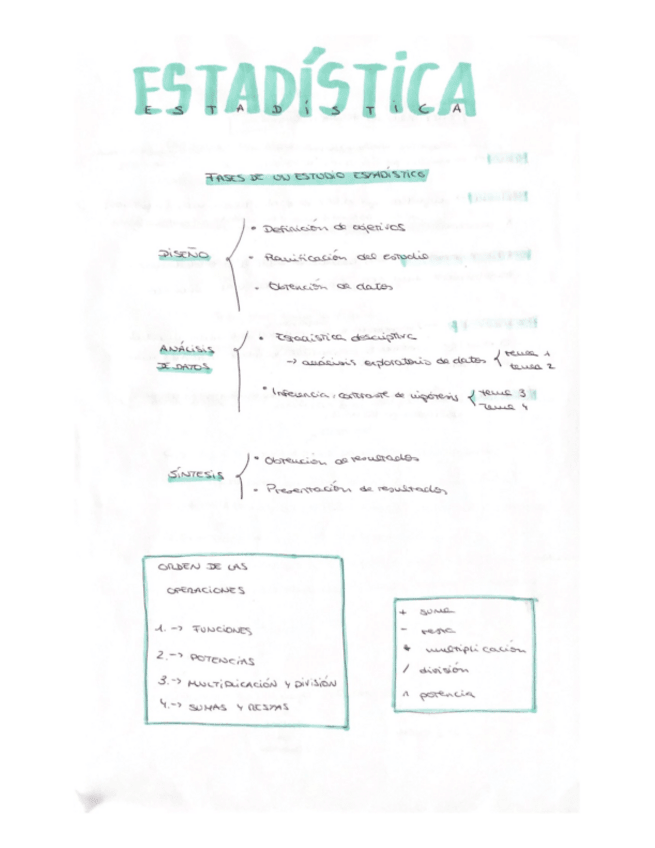 ESTADÍSTICA
ESTADÍSTICA
FASES DE UN ESTUDIO ESTADÍSTICO
DISEÑO
• Definición de objetivos
• Planificación del estudio
• Obtención de datos
ANÁLISIS
DE DATOS
• Estadística descriptiva
→ análisis exploratorio de datos { tema 1
tema 2
• Inferencia, contraste de hipótesis { tema 3
tema 4
SÍNTESIS
• Obtención de resultados
• Presentación de resultados
ORDEN DE LAS
OPERACIONES
1. → FUNCIONES
2. → POTENCIAS
3. → MULTIPLICACIÓN Y DIVISIÓN
4. → SUMAS Y RESTAS
+ suma
- resta
* multiplicación
/ división
^ potencia